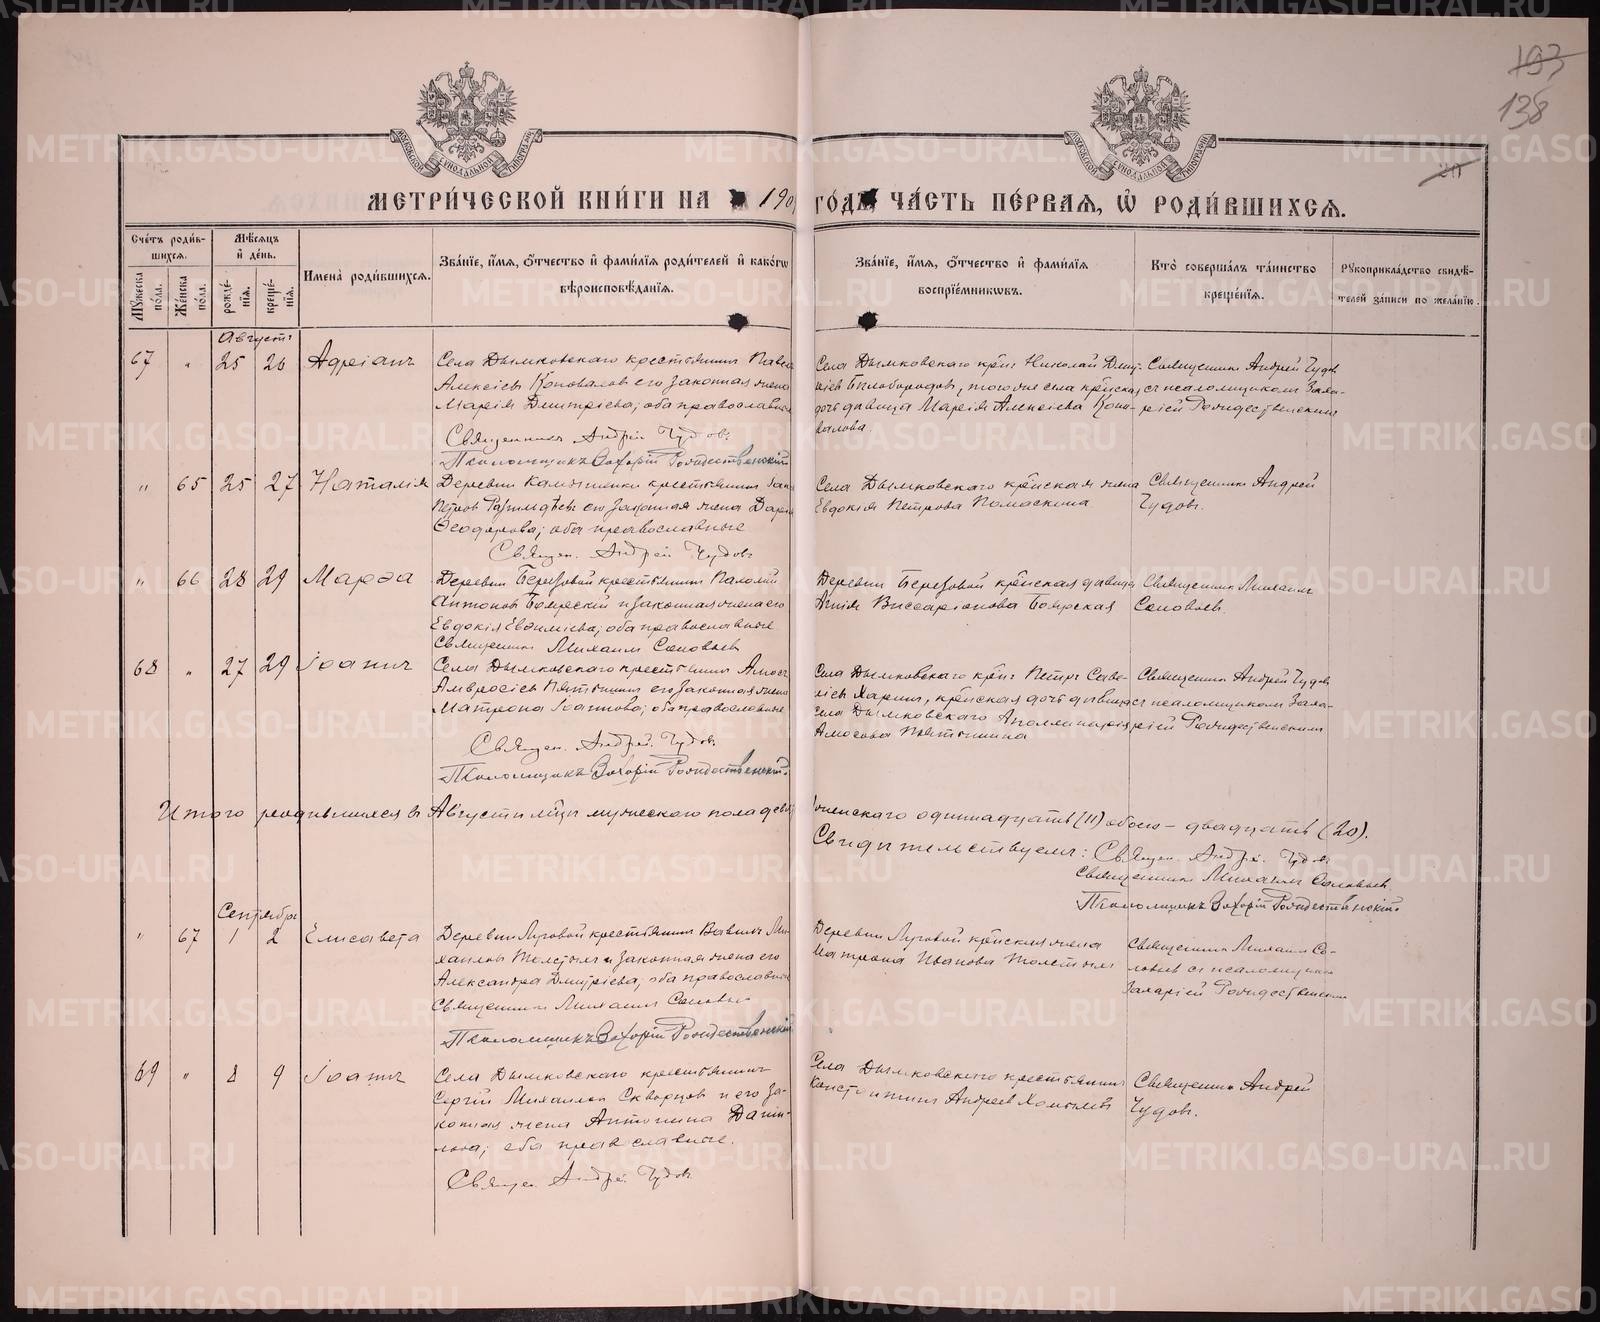 193
138
20
МЕТРИ́ЧЕСКОЙ КНИ́ГИ НА 190 ГОДЪ ЧА́СТЬ ПЕ́РВАѦ, Ѽ РОДИ́ВШИХСѦ.
Сче́тъ роди́в-
шихсѧ.
Мѣ́сѧцъ
и҆ де́нь.
Мꙋ́жеска
по́ла.
Же́нска
по́ла.
рожде́-
нїѧ.
креще́-
нїѧ.
Имена̀ роди́вшихсѧ.
Зва́нїе, и҆́мѧ, ѻ҆́тчество и҆ фами́лїѧ роди́телей и҆ како́гѡ
вѣроисповѣ́данїѧ.
Зва́нїе, и҆́мѧ, ѻ҆́тчество и҆ фами́лїѧ
воспрїе́мникѡвъ.
Кто̀ соверша́лъ та́инство
креще́нїѧ.
Рꙋкоприкла́дство свидѣ́-
телей за́писи по жела́нїю.
Августъ
67 " 25 26 Адріанъ
Села Дымковскаго крестьянинъ Павелъ
Алексіевъ Коноваловъ его законная жена
Марія Дмитріева; оба православные
Священникъ Андрей Чудовъ
Псаломщикъ Захарій Рождественскій
Села Дымковскаго кр-нъ Николай Дмит-
ріевъ Бѣлобородовъ, того же села кр-нская
дочь дѣвица Марія Алексіева Коно-
валова.
Священникъ Андрей Чудовъ
съ псаломщикомъ Заха-
ріей Рождественскимъ
" 65 25 27 Наталія
Деревни Камышенки крестьянинъ
Петровъ его законная жена Дарія
Ѳеодорова; оба православные
Священ. Андрей Чудовъ
Села Дымковскаго кр-нская жена
Евдокія Петрова Помаскина
Священникъ Андрей
Чудовъ.
" 66 28 29 Марѳа
Деревни Березовой крестьянинъ
Антоновъ Боярскій и законная жена его
Евдокія Евѳиміева; оба православные
Священникъ Михаилъ Соловьевъ
Деревни Березовой кр-нская дѣвица
Агнія Виссаріонова Боярская
Священникъ Михаилъ
Соловьевъ.
68 " 27 29 Іоаннъ
Села Дымковскаго крестьянинъ Амосъ
Амвросіевъ Пятышинъ его законная жена
Матрона Іоаннова; оба православные
Священ. Андрей Чудовъ
Псаломщикъ Захарій Рождественскій
Села Дымковскаго кр-нъ Петръ Савв-
іевъ Харинъ, кр-нская дочь дѣвица
села Дымковскаго Аполлинарія
Амосова Пятышина
Священникъ Андрей Чудовъ
съ псаломщикомъ Заха-
ріей Рождественскимъ
Итого родившихся въ Августѣ м-цѣ мужескаго пола девять
женскаго одиннадцать (11) обоего – двадцать (20).
Свидѣтельствуемъ: Священ. Андрей Чудовъ
Священникъ Михаилъ Соловьевъ
Псаломщикъ Захарій Рождественскій
Сентябрь
" 67 1 2 Елисавета
Деревни Луговой крестьянинъ Вавилъ Ми-
хаиловъ Толстыхъ и законная жена его
Александра Дмитріева, оба православные
Священникъ Михаилъ Соловьевъ
Псаломщикъ Захарій Рождественскій
Деревни Луговой кр-нская жена
Матрона Иванова Толстыхъ
Священникъ Михаилъ Со-
ловьевъ съ псаломщикомъ
Захаріей Рождественскимъ
69 " 8 9 Іоаннъ
Села Дымковскаго крестьянинъ
Сергій Михаиловъ Скворцовъ и его за-
конная жена Антонина Дани-
лова; оба православные.
Священ. Андрей Чудовъ
Села Дымковскаго крестьянинъ
Константинъ Андреевъ Хомылевъ
Священникъ Андрей
Чудовъ.
METRIKI.GASO-URAL.RU